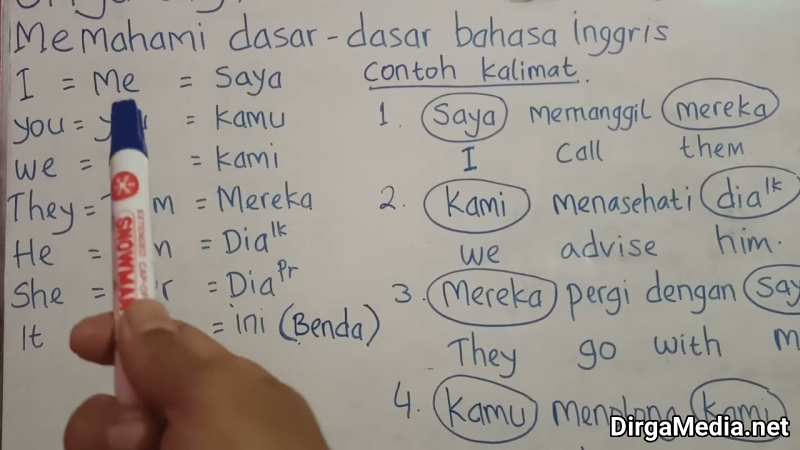 Memahami dasar-dasar bahasa inggris
I = Me = Saya
you = = kamu
we = = kami
They = = Mereka
He = = Dia lk
She = = Dia Pr
It = ini (Benda)
Contoh kalimat.
1. Saya memanggil mereka
I call them
2. Kami menasehati dia lk
we advise him.
3. Mereka pergi dengan
They go with
4. Kamu menolong kami
SNOWMAN
DirgaMedia.net